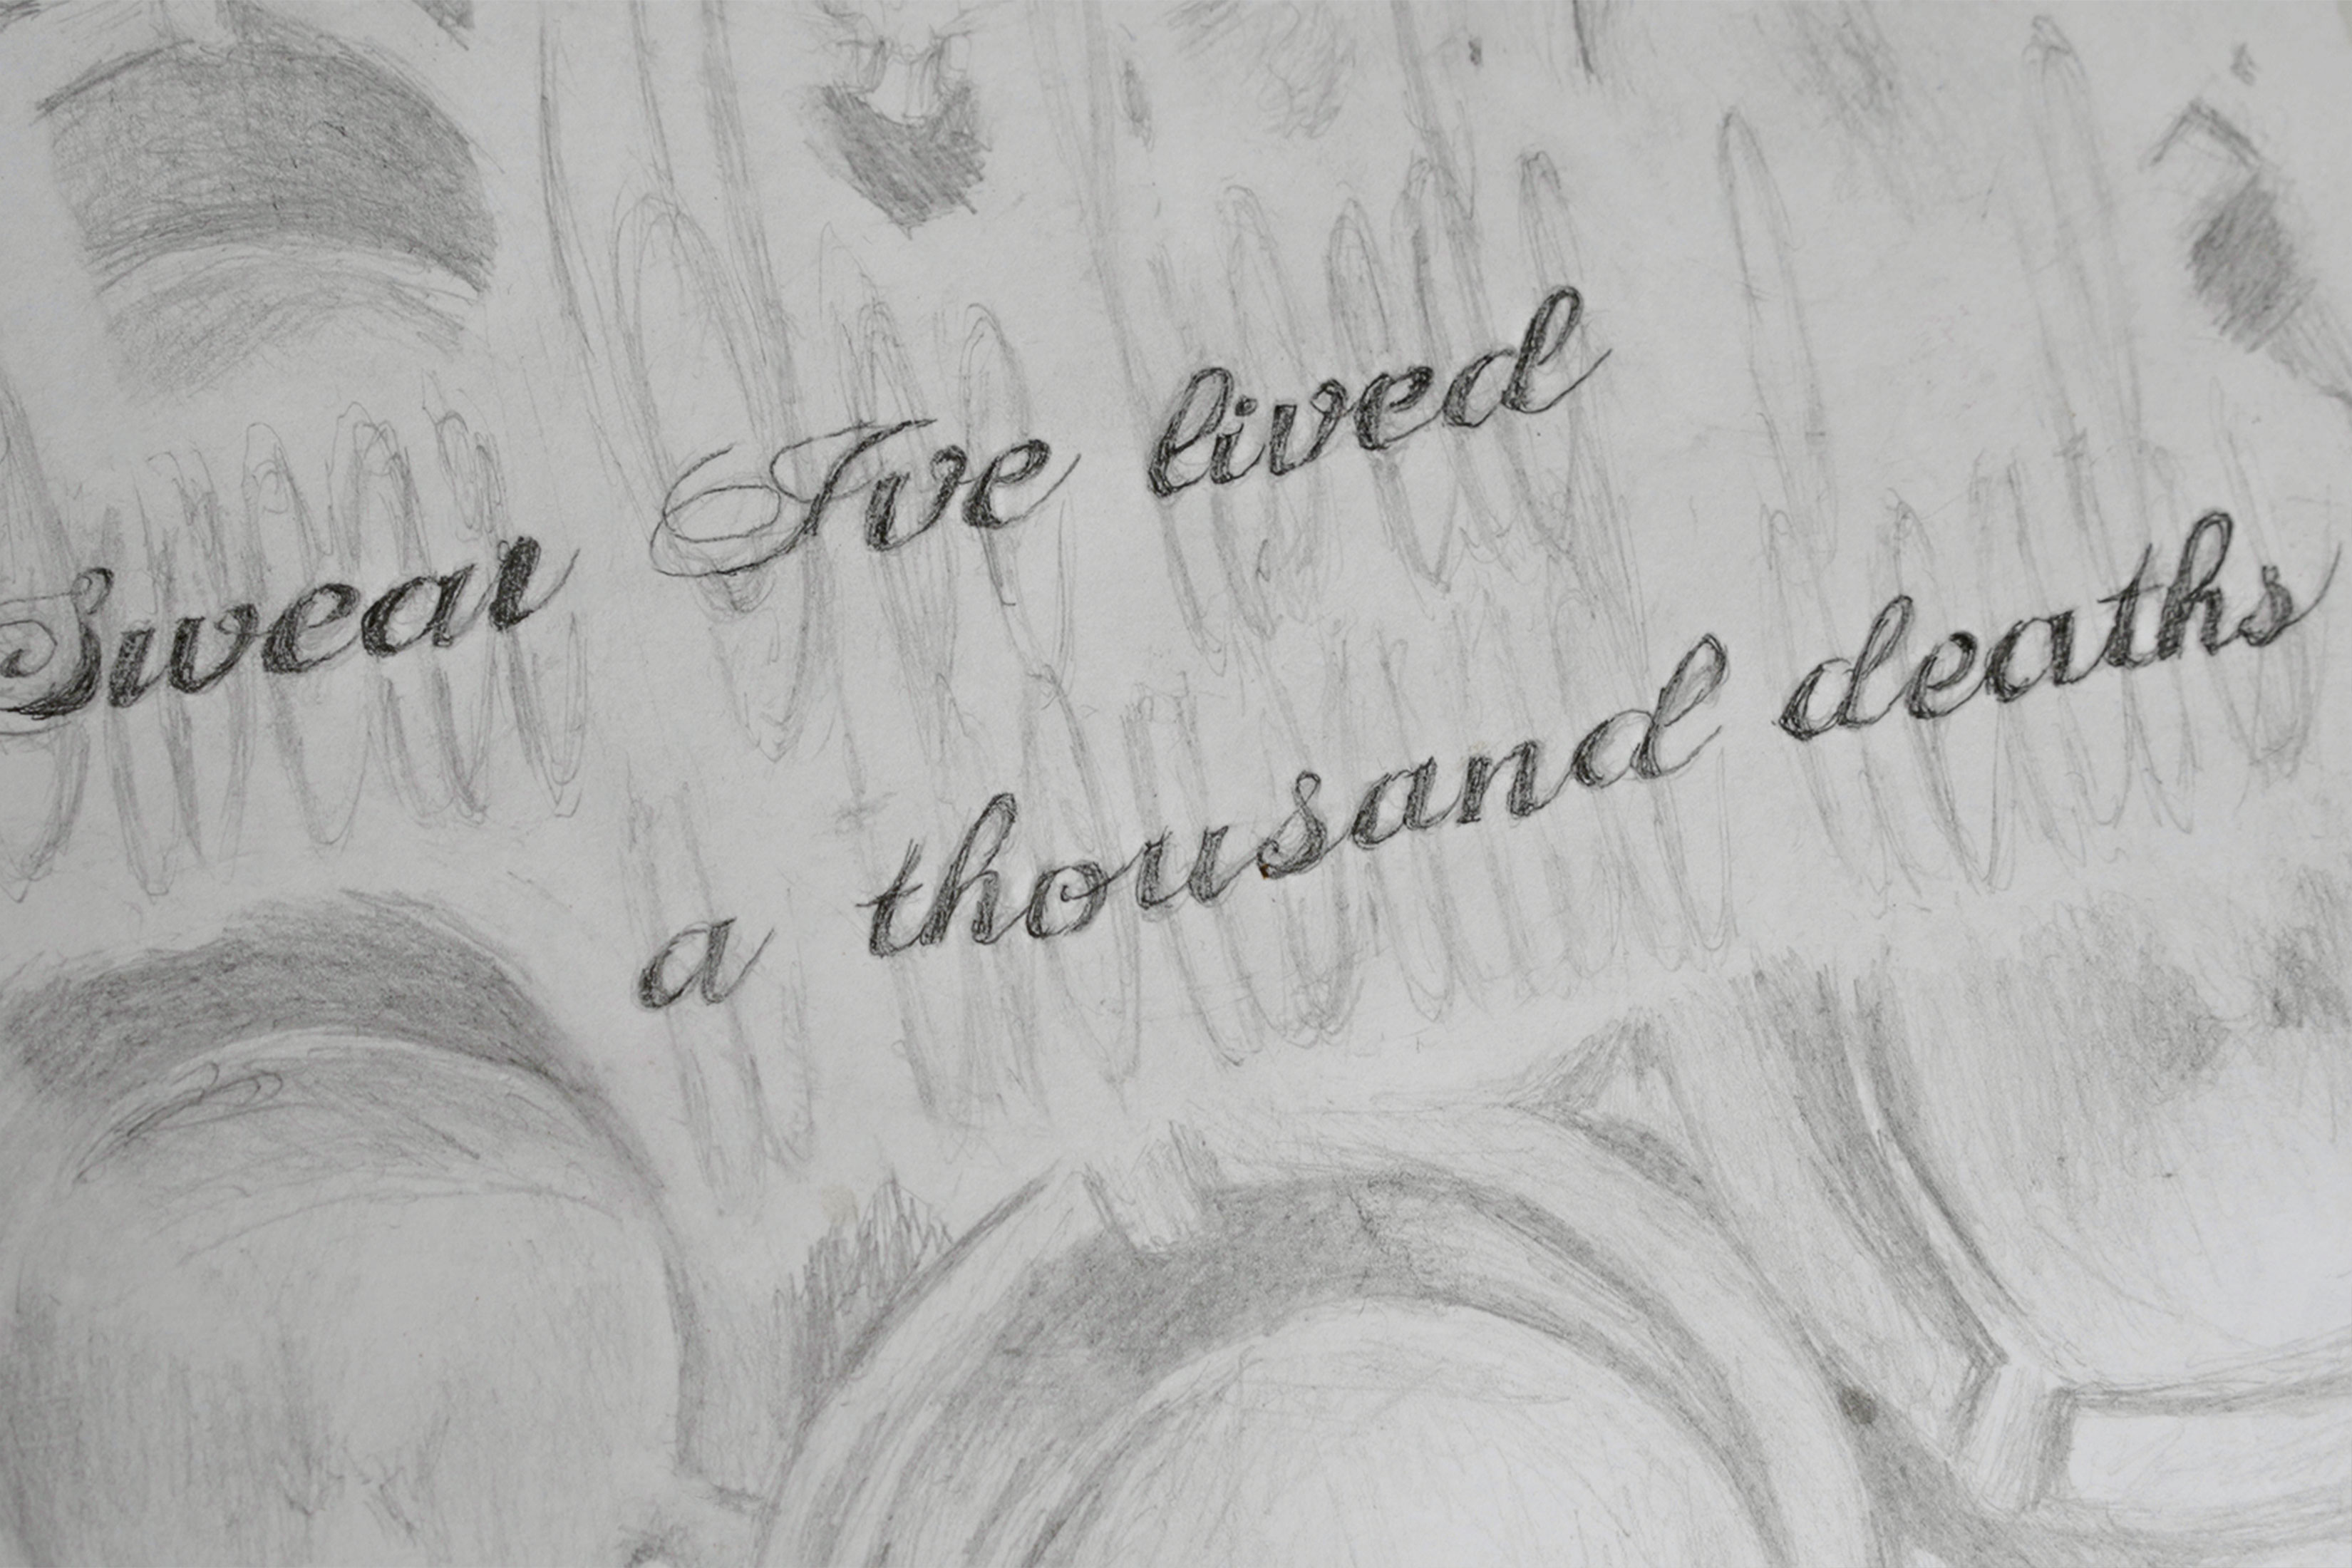 Swear Ive lived
a thousand deaths